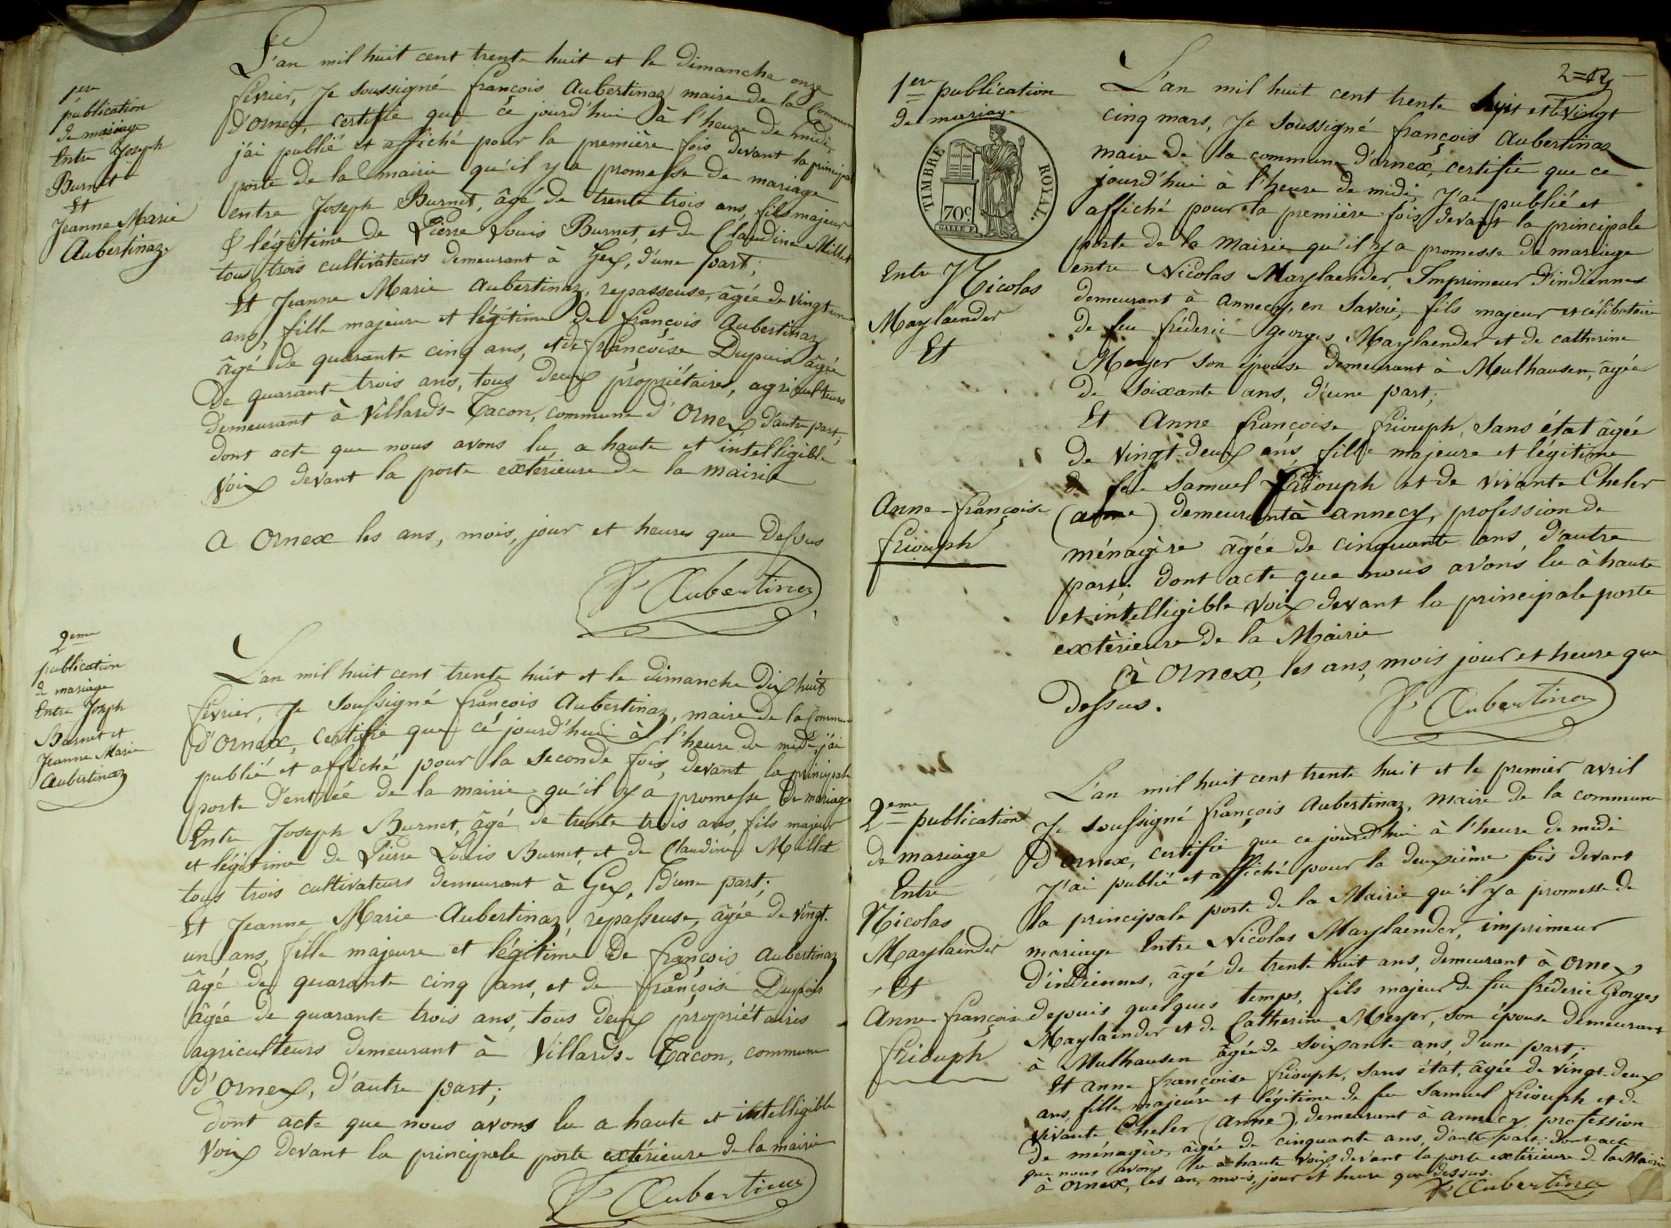 1ere
publication
de mariage
Entre Joseph
Burnet
Et
Jeanne Marie
Aubertinaz
L'an mil huit cent trente huit et le dimanche onze
février, Je soussigné françois Aubertinaz maire de la Commune
d'Ornex, certifie que ce jourd'hui à l'heure de midi
j'ai publié et affiché pour la première fois devant la principale
porte de la mairie qu'il y a promesse de mariage
entre Joseph Burnet, âgé de trente trois ans, fils majeur
& légitime de Pierre Louis Burnet, et de Claudine Millet
tous trois cultivateurs demeurant à Gex, d'une part;
Et Jeanne Marie Aubertinaz, repasseuse, âgée de vingt un
ans, fille majeure et légitime de françois Aubertinaz
âgé de quarante cinq ans, et de françoise Dupuis âgée
de quarant trois ans, tous deux propriétaires, agriculteurs
demeurant à Villards-Tacon, commune d'Ornex, d'autre part,
dont acte que nous avons lu a haute et intelligible
voix devant la porte extérieure de la mairie
A Ornex les ans, mois, jour et heures que dessus
F Aubertinaz
2eme
publication
de mariage
Entre Joseph
Burnet et
Jeanne Marie
Aubertinaz
L'an mil huit cent trente huit et le dimanche dix huit
février, Je soussigné françois Aubertinaz, maire de la Commune
d'Ornex, certifie que ce jourd'hui à l'heure de midi, j'ai
publié et affiché pour la seconde fois, devant la principale
porte d'entrée de la mairie qu'il y a promesse de mariage
Entre Joseph Burnet, âgé de trente trois ans, fils majeur
et légitime de Pierre Louis Burnet, et de Claudine Millet
tous trois cultivateurs demeurant à Gex, d'une part;
Et Jeanne Marie Aubertinaz, repasseuse, âgée de vingt-
un ans, fille majeure et légitime de françois Aubertinaz
âgé de quarante cinq ans, et de françoise Dupuis
âgée de quarante trois ans, tous deux propriétaires
agriculteurs demeurant à Villards-Tacon, commune
d'Ornex, d'autre part;
dont acte que nous avons lu a haute et intelligible
voix devant la principale porte extérieure de la mairie
F Aubertinaz
1ere publication
de mariage
TIMBRE ROYAL.
70c.
Entre Nicolas
Maylaender
Et
Anne-françoise
friouph
L'an mil huit cent trente huit et le vingt
cinq mars, Je soussigné françois Aubertinaz
maire de la commune d'ornex, certifie que ce
jourd'hui à l'heure de midi, J'ai publié et
affiché pour la première fois devant la principale
porte de la Mairie qu'il y a promesse de mariage
entre Nicolas Maylaender, Imprimeur d'indiennes
demeurant à annecy, en Savoie, fils majeur et célibataire
de feu fréderic Georges Maylaender et de catherine
Meyer son épouse demeurant à Mulhausen, âgée
de soixante ans, d'une part;
Et Anne françoise friouph, sans état âgée
de vingt-deux ans, fille majeure et légitime
de feu Samuel friouph et de vivante Cheler
(anne) demeurant à annecy, profession de
ménagère âgée de cinquante ans, d'autre
part. dont acte que nous avons lu à haute
et intelligible voix devant la principale porte
extérieure de la Mairie
à Ornex, les ans, mois jour et heure que
dessus.
F Aubertinaz
2eme publication
de mariage
Entre
Nicolas
Maylaender
Et
Anne-françoise
friouph
L'an mil huit cent trente huit et le premier avril
Je soussigné françois Aubertinaz, maire de la commune
d'ornex, certifie que ce jourd'hui à l'heure de midi
J'ai publié et affiché pour la deuxième fois devant
la principale porte de la Mairie qu'il y a promesse de
mariage Entre Nicolas Maylaender, imprimeur
d'indiennes, âgé de trente huit ans, demeurant à Ornex
depuis quelques temps, fils majeur de feu fréderic Georges
Maylaender et de Catherine Meyer, son épouse demeurant
à Mulhausen âgée de soixante ans, d'une part;
Et anne françoise friouph, sans état, âgée de vingt-deux
ans, fille majeure et légitime de feu Samuel friouph et de
vivante Cheler (Anne), demeurant à annecy profession
de ménagère, âgée de cinquante ans, d'autre part. dont acte
que nous avons lu à haute voix devant la porte extérieure de la Mairie
à Ornex, les an, mois, jour et heure que dessus.
F Aubertinaz